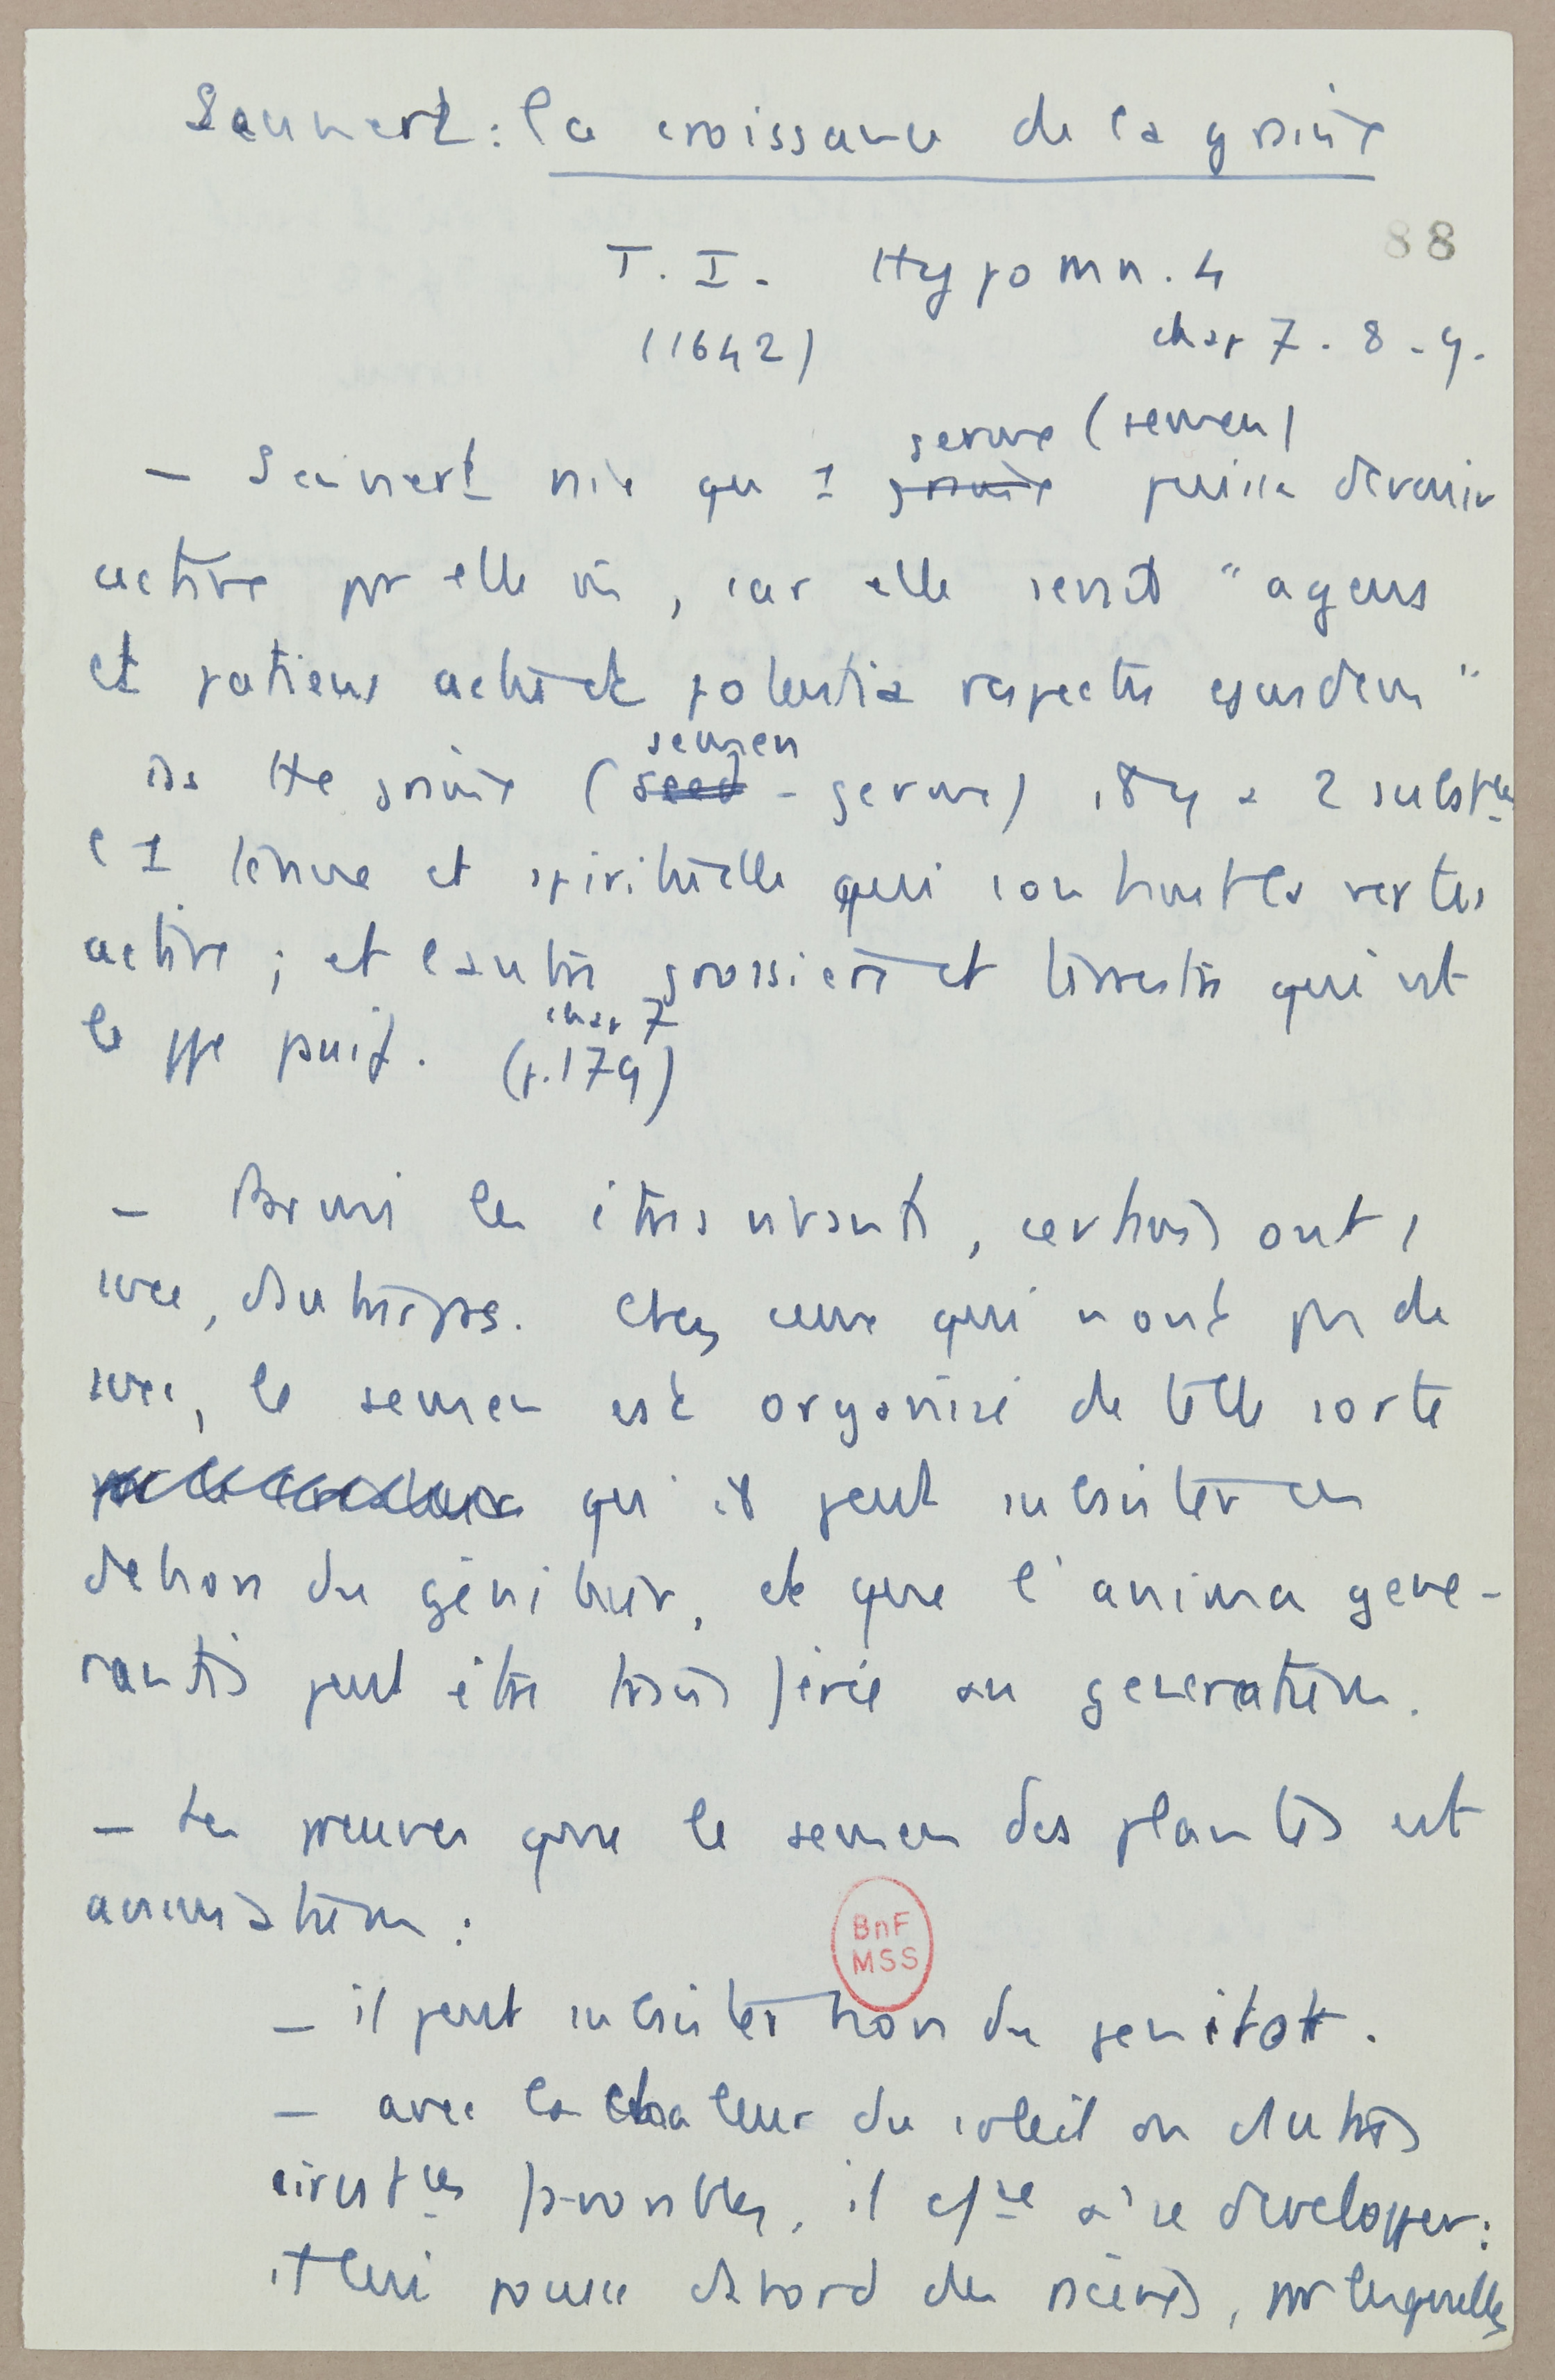 Sennert : la croissance de la graine
88
T. I. Hypomn. 4
(1642) chap 7. 8. 9.
germe (semen)
— Sennert nie qu 1 graine puisse devenir
active par elle m̂, car elle serait "agens
et patiens actu et potentia respectu ejusdem"
semen
Ds tte graine (seed - germe) il y a 2 subst ces
l 1 ténue et spirituelle qui contient les vertus
active ; et l'autre grossière et terrestre qui est
le ppe passif. (p. 179)
chap 7
— Parmi les êtres vivants, certains ont 1
sexe, d'autres pas. Chez ceux qui n'ont pas de
sexe, le semen est organisé de telle sorte
qu'il peut subsister en
dehors du géniteur, et que l'anima gene-
rantis peut être transférée au generatum.
— Les preuves que le semen des plantes est
animatum :
— il peut subsister hors du genitor.
— avec la chaleur du soleil ou d'autres
circst ces favorables, il c/ce à se développer :
il lui pousse d'abord des racines, par lesquelles
BnF
MSS